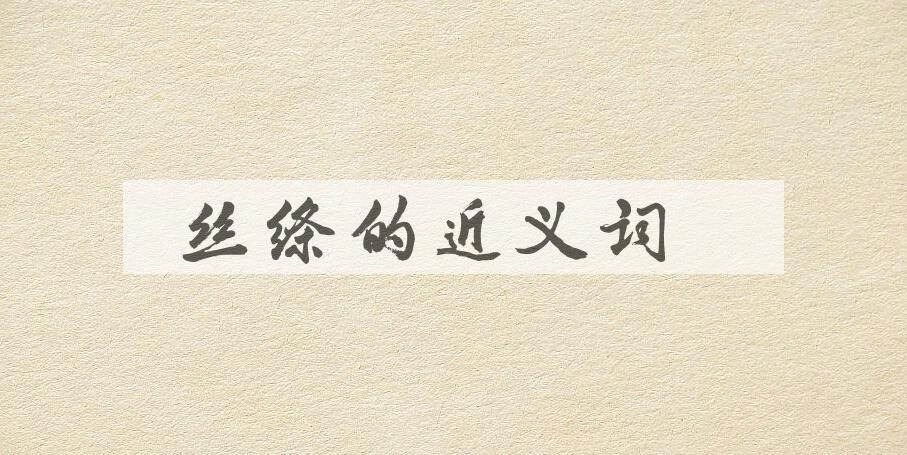 丝绦的近义词